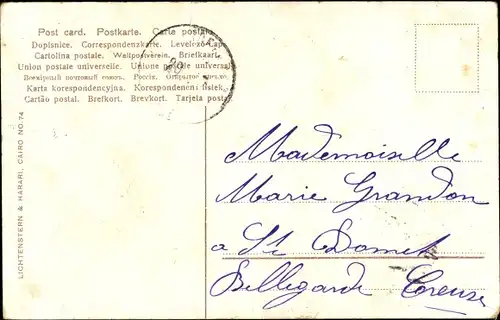 Post card. Postkarte. Carte postale
Dopisnice. Correspondenzkarte. Levelező-Lap
Cartolina postale. Weltpostverein. Briefkaart.
Union postale universelle. Unione postale universale
Всемірный почтовый союзъ. Россія. Открытое письмо.
Karta korespondencyjna. Korespondenční lístek.
Cartão postal. Brefkort. Brevkort. Tarjeta postal
29
LICHTENSTERN & HARARI, CAIRO NO. 74
Mademoiselle
Marie Grandon
a St Domet
Bellegarde Creuse